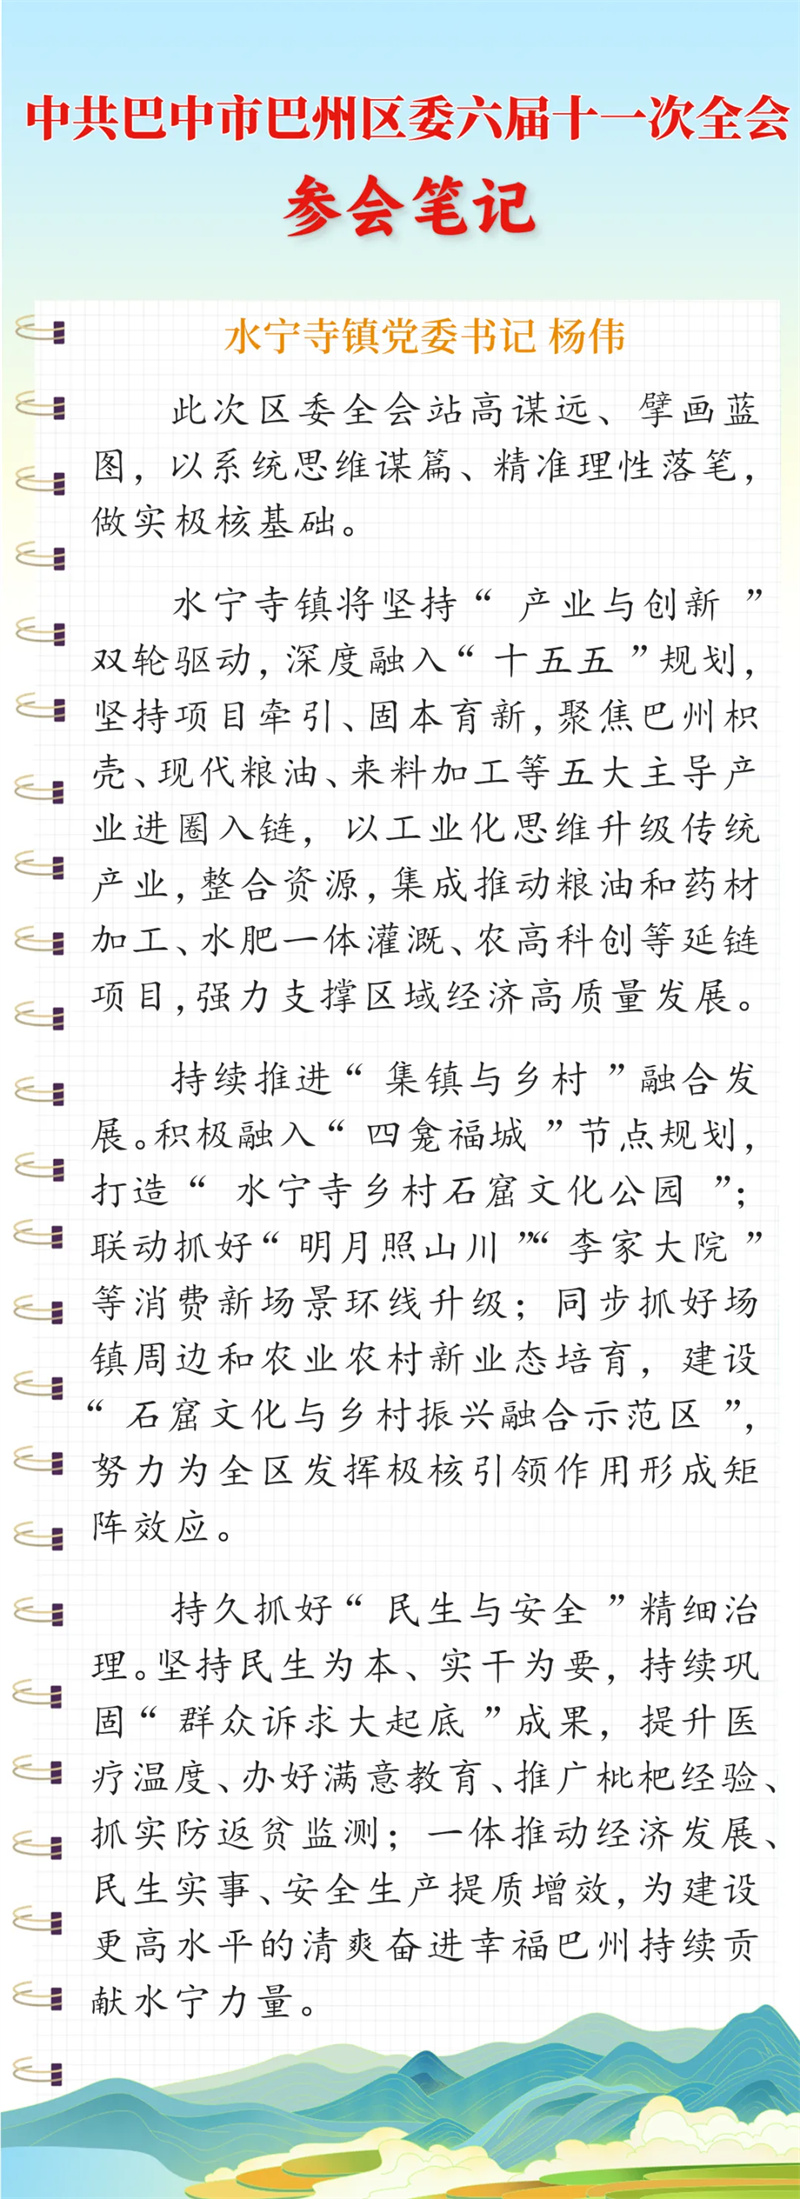 中共巴中市巴州区委六届十一次全会
参会笔记
水宁寺镇党委书记 杨伟
此次区委全会站高谋远、擘画蓝
图，以系统思维谋篇、精准理性落笔，
做实极核基础。
水宁寺镇将坚持“ 产业与创新 ”
双轮驱动，深度融入“ 十五五 ”规划，
坚持项目牵引、固本育新，聚焦巴州枳
壳、现代粮油、来料加工等五大主导产
业进圈入链，以工业化思维升级传统
产业，整合资源，集成推动粮油和药材
加工、水肥一体灌溉、农高科创等延链
项目，强力支撑区域经济高质量发展。
持续推进“ 集镇与乡村 ”融合发
展。积极融入“ 四龛福城 ”节点规划，
打造“ 水宁寺乡村石窟文化公园 ”；
联动抓好“ 明月照山川 ”“ 李家大院 ”
等消费新场景环线升级；同步抓好场
镇周边和农业农村新业态培育，建设
“ 石窟文化与乡村振兴融合示范区 ”，
努力为全区发挥极核引领作用形成矩
阵效应。
持久抓好“ 民生与安全 ”精细治
理。坚持民生为本、实干为要，持续巩
固“ 群众诉求大起底 ”成果，提升医
疗温度、办好满意教育、推广枇杷经验、
抓实防返贫监测；一体推动经济发展、
民生实事、安全生产提质增效，为建设
更高水平的清爽奋进幸福巴州持续贡
献水宁力量。